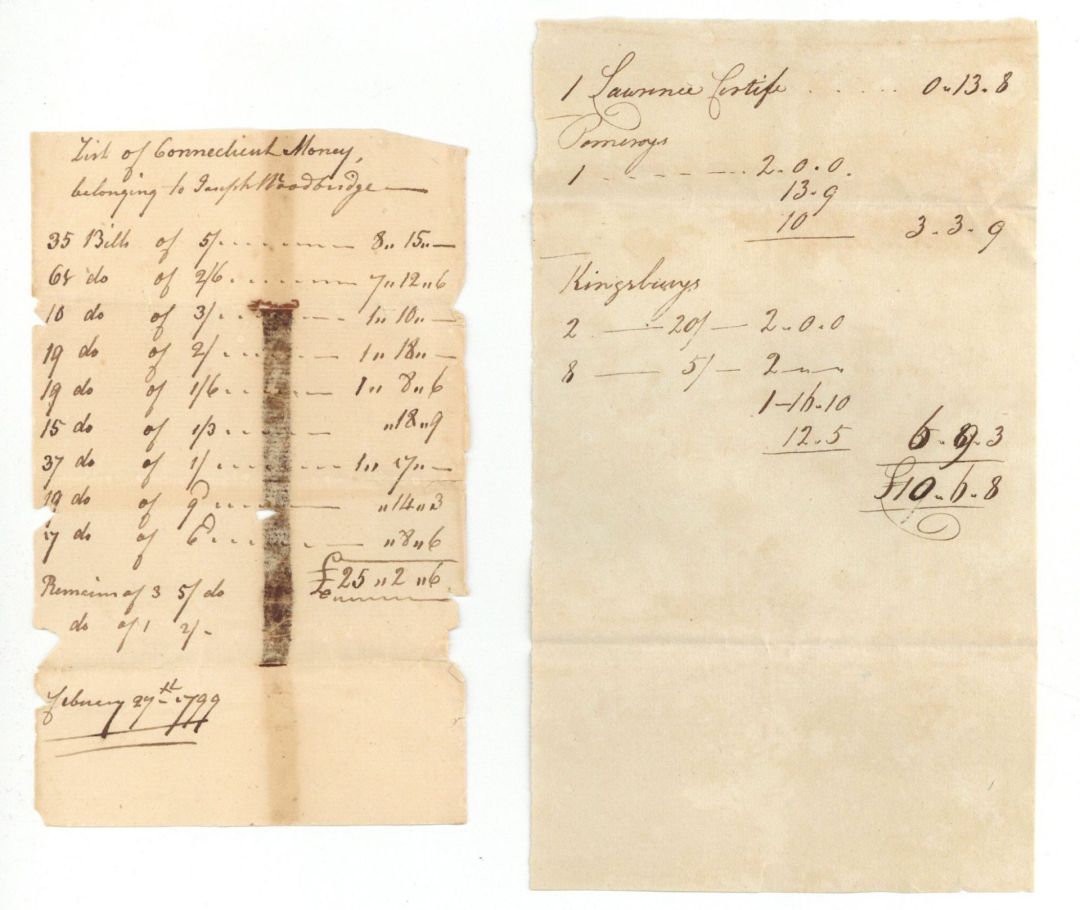 List of Connecticut Money,
belonging to Joseph Woodbridge
35 Bills of 5/ 8" 15" —
61 do of 2/6 7" 12" 6
10 do of 3/ 1" 10" —
19 do of 2/ 1" 18" —
19 do of 1/6 1" 8" 6
15 do of 1/3 " 18" 9
37 do of 1/ 1" 17" —
19 do of 9 " 14" 3
17 do of 6 " 8" 6
Remains of 3 5/ do £25" 2" 6
do of 1 2/-
February 27th 1799
1 Lawrence Certife . . . . . . 0"13.8
Pomeroys
1 - - - - - - - 2.0.0.
13.9
10 3.3.9
Kingsburys
2 — 20/ — 2.0.0
8 — 5/ — 2 —
1-16.10
12.5 6.9.3
£10.6.8